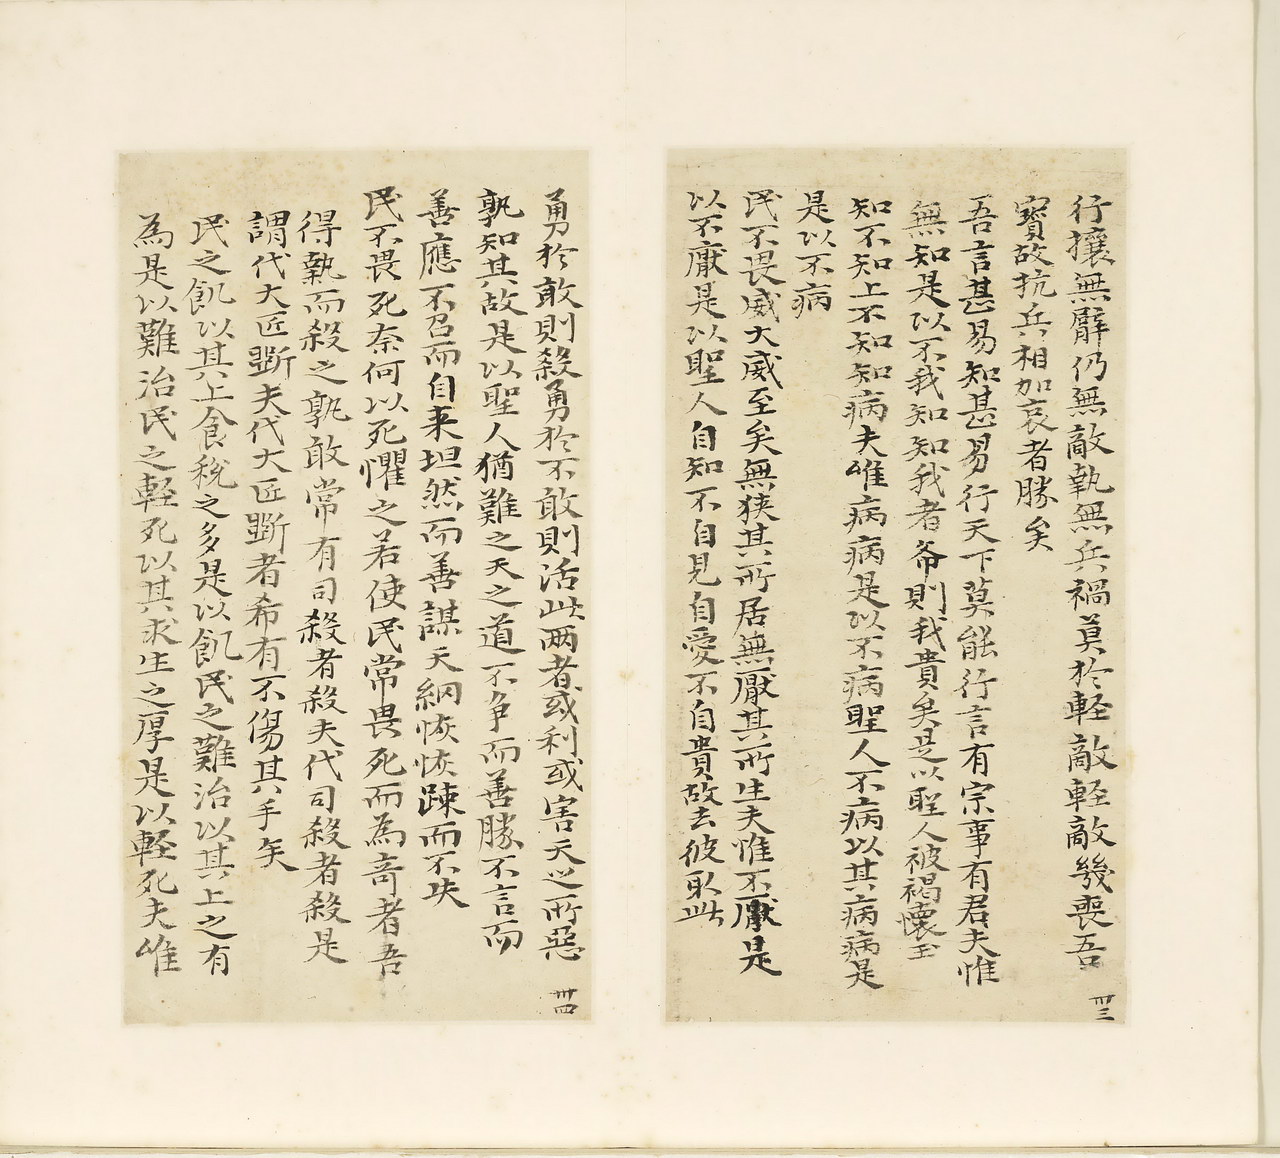 行攘無臂仍無敵執無兵禍莫於輕敵輕敵幾喪吾
寳故抗兵相加哀者勝矣
吾言甚易知甚易行天下莫能行言有宗事有君夫惟
無知是以不我知知我者希則我貴矣是以聖人被褐懷玉
知不知上不知知病夫唯病病是以不病聖人不病以其病病是
是以不病
民不畏威大威至矣無狹其所居無厭其所生夫惟不厭是
以不厭是以聖人自知不自見自愛不自貴故去彼取此
卅三
勇於敢則殺勇於不敢則活此兩者或利或害天之所惡
孰知其故是以聖人猶難之天之道不争而善勝不言而
善應不召而自来坦然而善謀天網恢恢踈而不失
民不畏死奈何以死懼之若使民常畏死而為竒者吾
得執而殺之孰敢常有司殺者殺夫代司殺者殺是
謂代大匠斲夫代大匠斲者希有不傷其手矣
民之飢以其上食稅之多是以飢民之難治以其上之有
為是以難治民之輕死以其求生之厚是以輕死夫唯
卅四